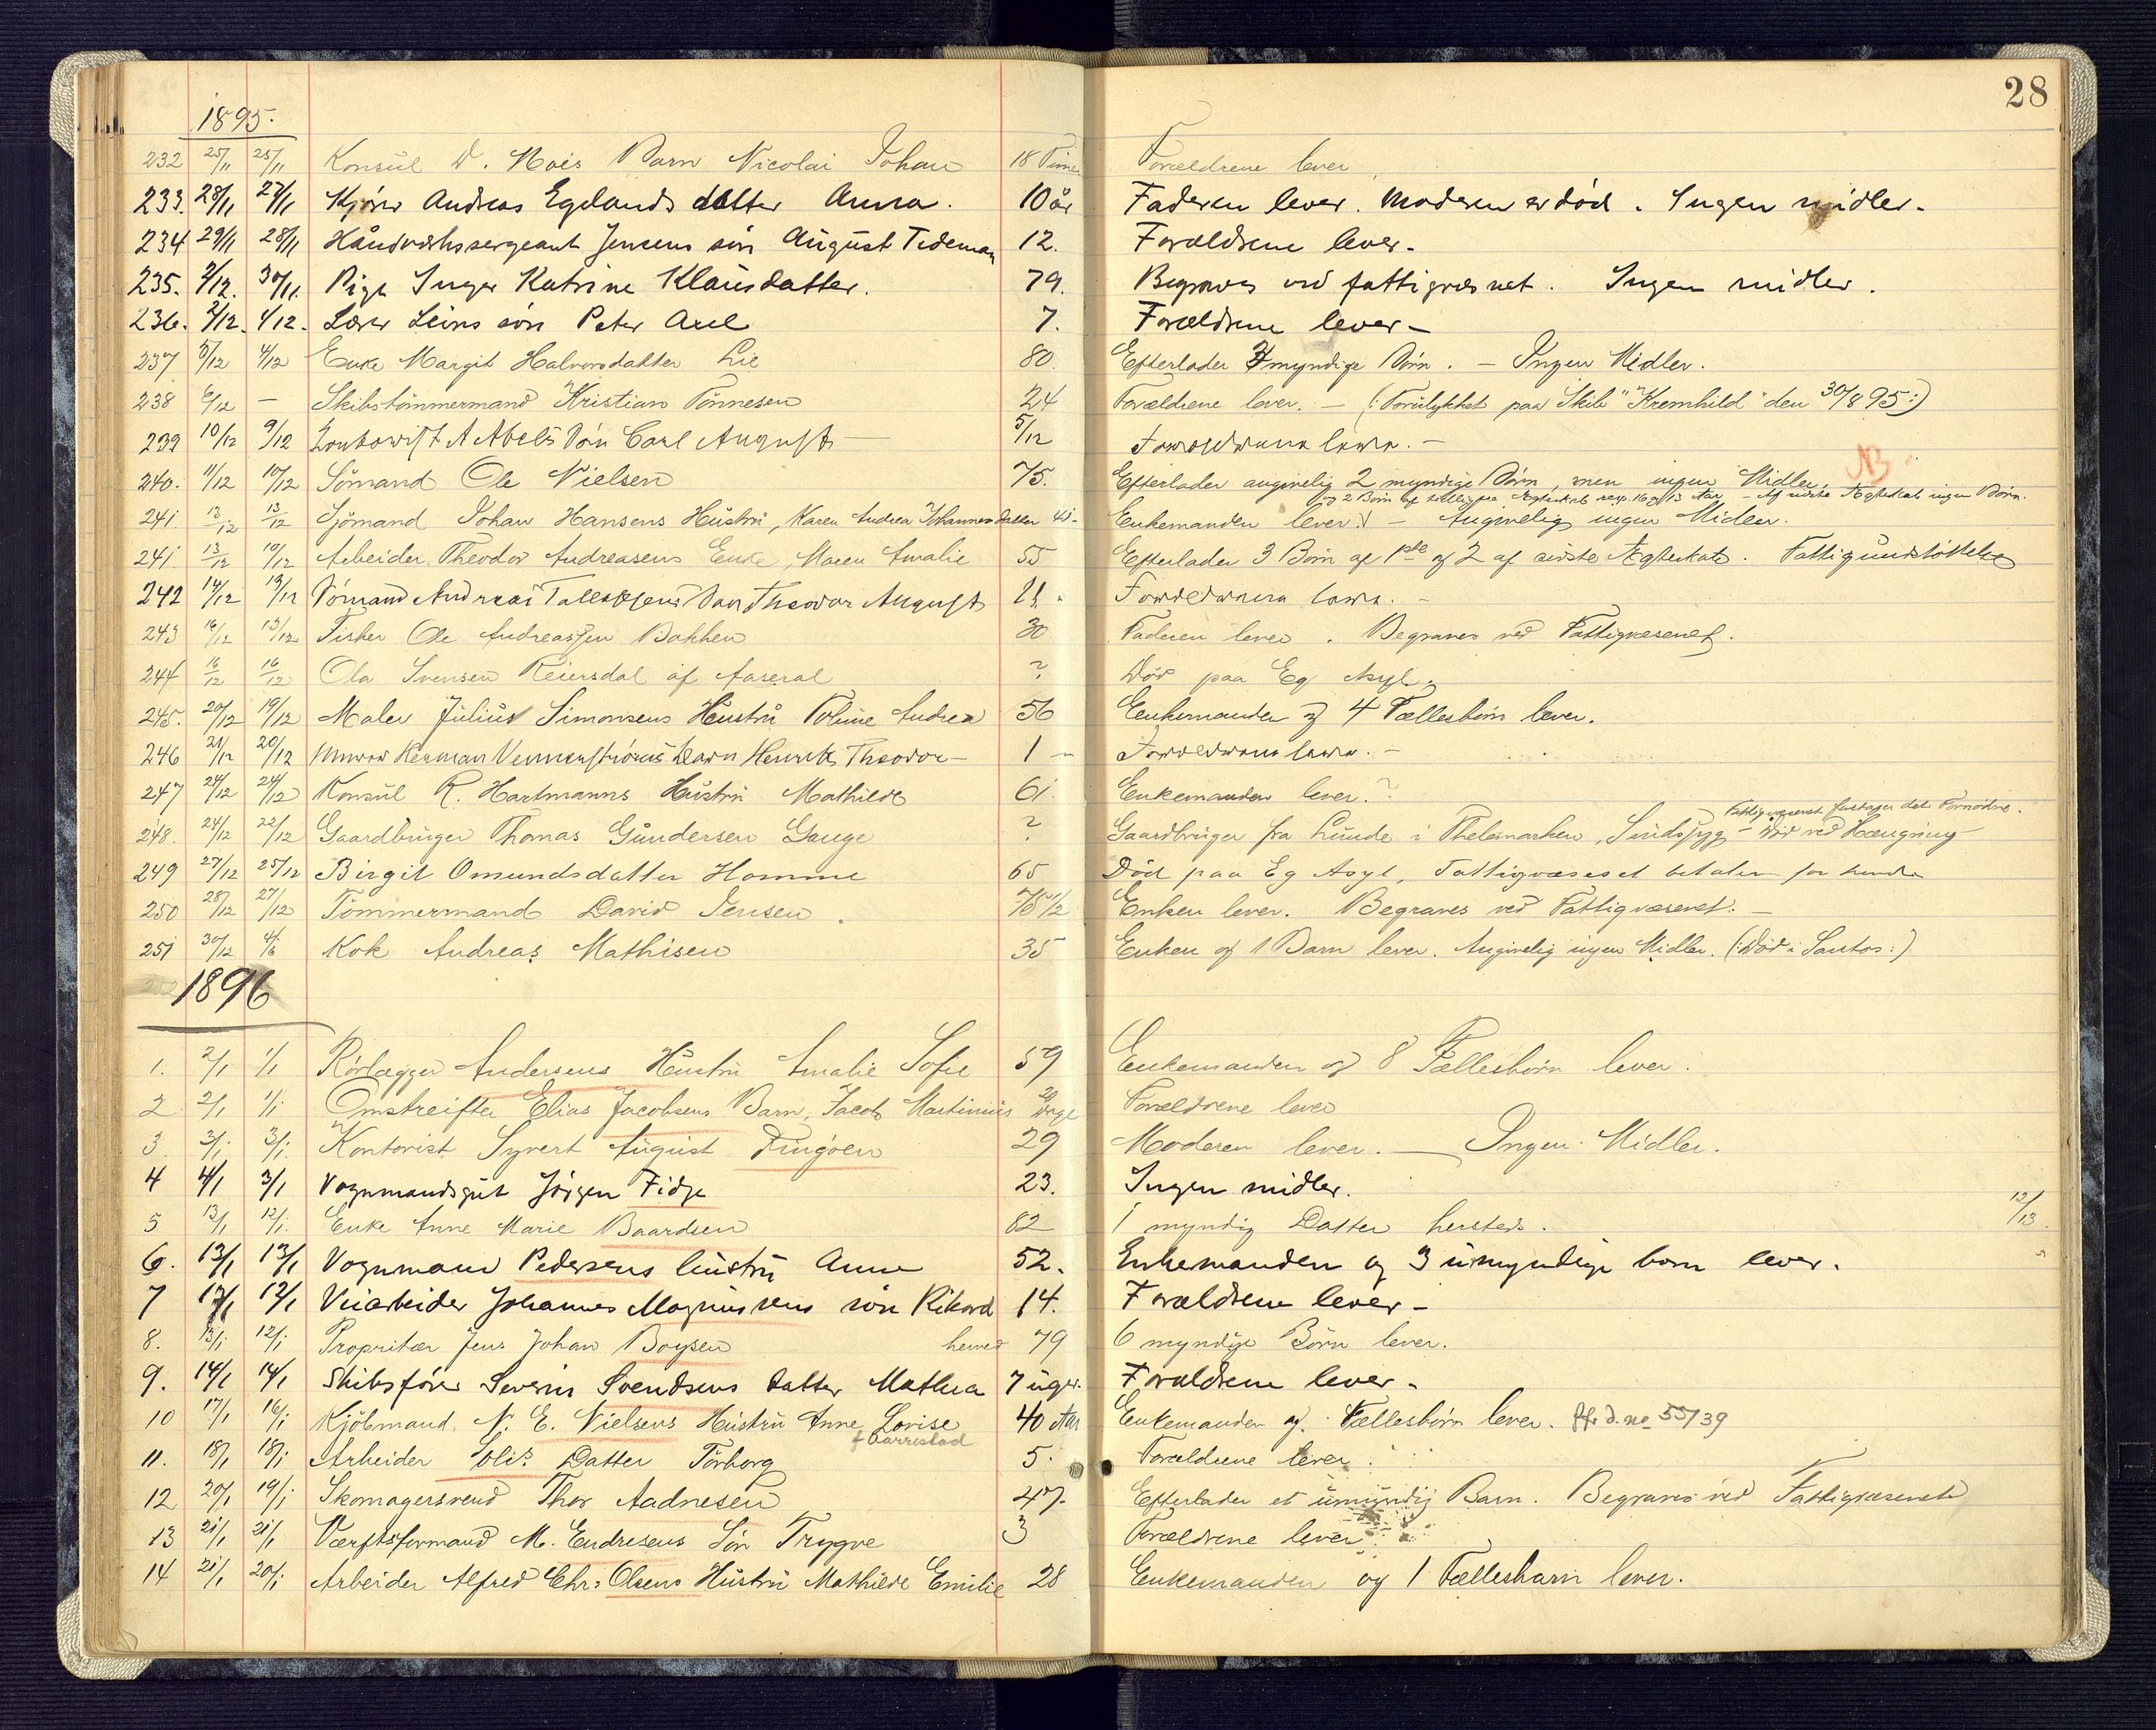 28
1895.
232 25/11 25/11 Konsül D. Moes Barn Nicolai Johan 18 Timer Forældrene lever
233. 28/11 27/11 Kjører Andreas Egelands datter Anna. 10 år Faderen lever. Moderen er død. Ingen midler.
234 29/11 28/11 Håndværkssergeant Jensens søn Aügüst Tideman 12. Forældrene lever.
235. 2/12. 30/11. Pige Inger Katrine Klaüsdatter. 79. Begraves ved fattigvæsnet. Ingen midler.
236. 2/12. 1/12. Lærer søn Peter Axel 7. Forældrene lever –
237 5/12 4/12 Enke Margit Halvorsdatter Lie 80. Efterlader myndige Børn. – Ingen Midler.
238 6/12 – Skibstömmermand Kristian Tönnesen 24 Forældrene lever. – (: Forülykket paa Skib "Kremhild" den 30/8 95 :)
239 10/12 9/12 A Abels Søn Carl August – 5/12 Forældrene lever. –
240. 11/12 10/12 Sömand Ole Nielsen 75. Efterlader angivelig 2 myndige Börn, men ingen Midler. NB
og 2 Børn af tidligere Ægteskab resp. 16 og 13 Aar – Af sidste Ægteskab ingen Børn.
241. 13/12 13/12 Sjömand Johan Hansens Hüstrü, Karen Andrea Johannesdatter Enkemanden lever. – Angivelig ingen Midler.
241. 13/12 10/12 Arbeider Theodor Andreasens Enke, Maren Amalie 55 Efterlader 3 Børn af 1ste og 2 af sidste Ægteskab. Fattigünderstöttelse
242 14/12 13/12 Sömand Andreas Tallaksens Søn Theodor August Forældrene lever. –
243 16/12 13/12 Fisker Ole Andreassen Bakken 30 Faderen lever. Begraves ved Fattigvæsenet.
244 16/12 16/12 Ola Svensen Reiersdal af Aaseral ? Död paa Eg Asyl.
245. 20/12 19/12 Maler Jüliüs Simonsens Hüstrü Toline Andrea 56 Enkemanden og 4 Fællesbörn lever.
246 21/12 20/12 Murer Herman Vennerstrøms Barn Henrik Theodor – 1 – Forældrene lever. –
247 24/12 24/12 Konsül R. Hartmanns Hüstrü Mathilde 61. Enkemanden lever.
Fattigvæsenet foretager det Fornødne.
248. 24/12 22/12 Gaardbrüger Thomas Gündersen Gauge ? Gaardbrüger fra Lünde i Thelemarken, Sindssyg – Död ved Hængning
249 27/12 25/12 Birgit Omundsdatter Homme 65 Död paa Eg Asyl, Fattigvæsenet betaler for hende
250 28/12 27/12 Tömmermand David Jensen. 75 1/2 Enken lever. Begraves ved Fattigvæsenet. –
251 30/12 4/6 Kok Andreas Mathisen 35 Enken og 1 Barn lever. Angivelig ingen Midler. (: Död i Santos :)
1896
1. 2/1 1/1 Rörlægger Andersens Hüstrü Amalie Sofie 59 Enkemanden og 8 Fællesbörn lever.
2 2/1 1/1 Omstreifer Elias Jacobsens Barn, Jacob Martinius 20 Dage Forældrene lever
3. 3/1 3/1. Kontorist Syvert Aügüst Dingöen 29 Moderen lever. – Ingen Midler.
4 4/1 3/1 Vognmandsgüt Jörgen Fidje 23. Ingen midler.
5 13/1 12/1. Enke Anne Marie Baardsen 82 1 myndig Datter hersteds. 12/13.
6. 13/1 13/1 Vognmann Pedersens hüstrü Anne 52. Enkemanden og 3 ümyndige børn lever.
7 13/1 12/1 Veiarbeider Johannes Magnüssens søn Rikard 14. Forældrene lever –
8. 13/1 12/1 Propritær Jens Johan Boysen 79 6 myndige Börn lever.
9. 14/1 14/1 Skibsfører Severin Svendsens datter Mathea 7 üger. Forældrene lever.
10 17/1 16/1 Kjöbmand. N. E. Nielsens Hüstrü Anne Lovise 40 Aar Enkemanden og Fællesbörn lever. jfr. d. no 55/39
f Barrestad
11. 18/1 18/1 Arbeider Datter Torborg 5. Forældrene lever.
12 20/1 19/1 Skomagersvend Thor Aadnesen 47. Efterlader et ümyndig Barn. Begraves ved Fattigvæsenet
13 21/1 21/1 Værftsformand M. Endresens Sön Trygve 3 Forældrene lever.
14 21/1 20/1 Arbeider Alfred Chr: Olsens Hüstrü Mathilde Emilie 28 Enkemanden og 1 Fællesbarn lever.